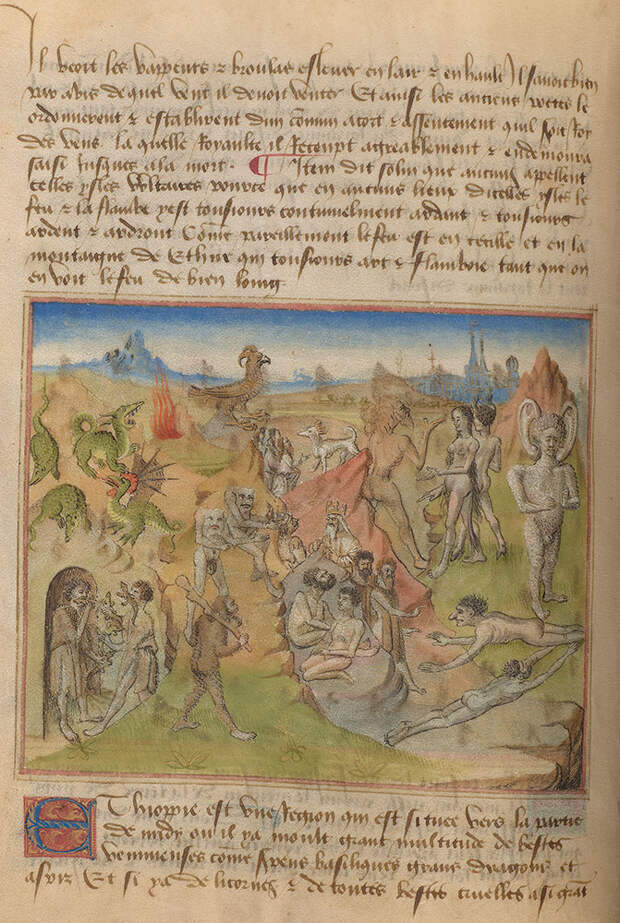 Il veoit les vappeurs & broulas eslever en lair & en hault Il savoit bien
par avis de quel vent il devoit venter Et ainsi les anciens poetes le
ordonnerent & establirent dun comun acort & assentement quil soit Roy
des vens. la quelle Royaulte il Receupt agreablement & en demoura
saisi Jusques a la mort. ¶ Item dit solin que aucuns appellent
celles ysles Vulcaires pource que en aucuns lieux dicelles ysles le
feu & la flambe yest tousiours continuelment ardant & tousiours
ardent & ardront Come pareillement le feu est en cecille et en la
montaigne de Ethur qui tousiours art & flamboie tant que on
en voit le feu de bien loing
Ethioppie est une Region qui est situee vers la partie
de midy ou il ya moult grant multitude de bestes
venimeuses come serpens basiliques grans dragons et
aspis Et si ya de licornes & de toutes bestes cruelles a si grãt